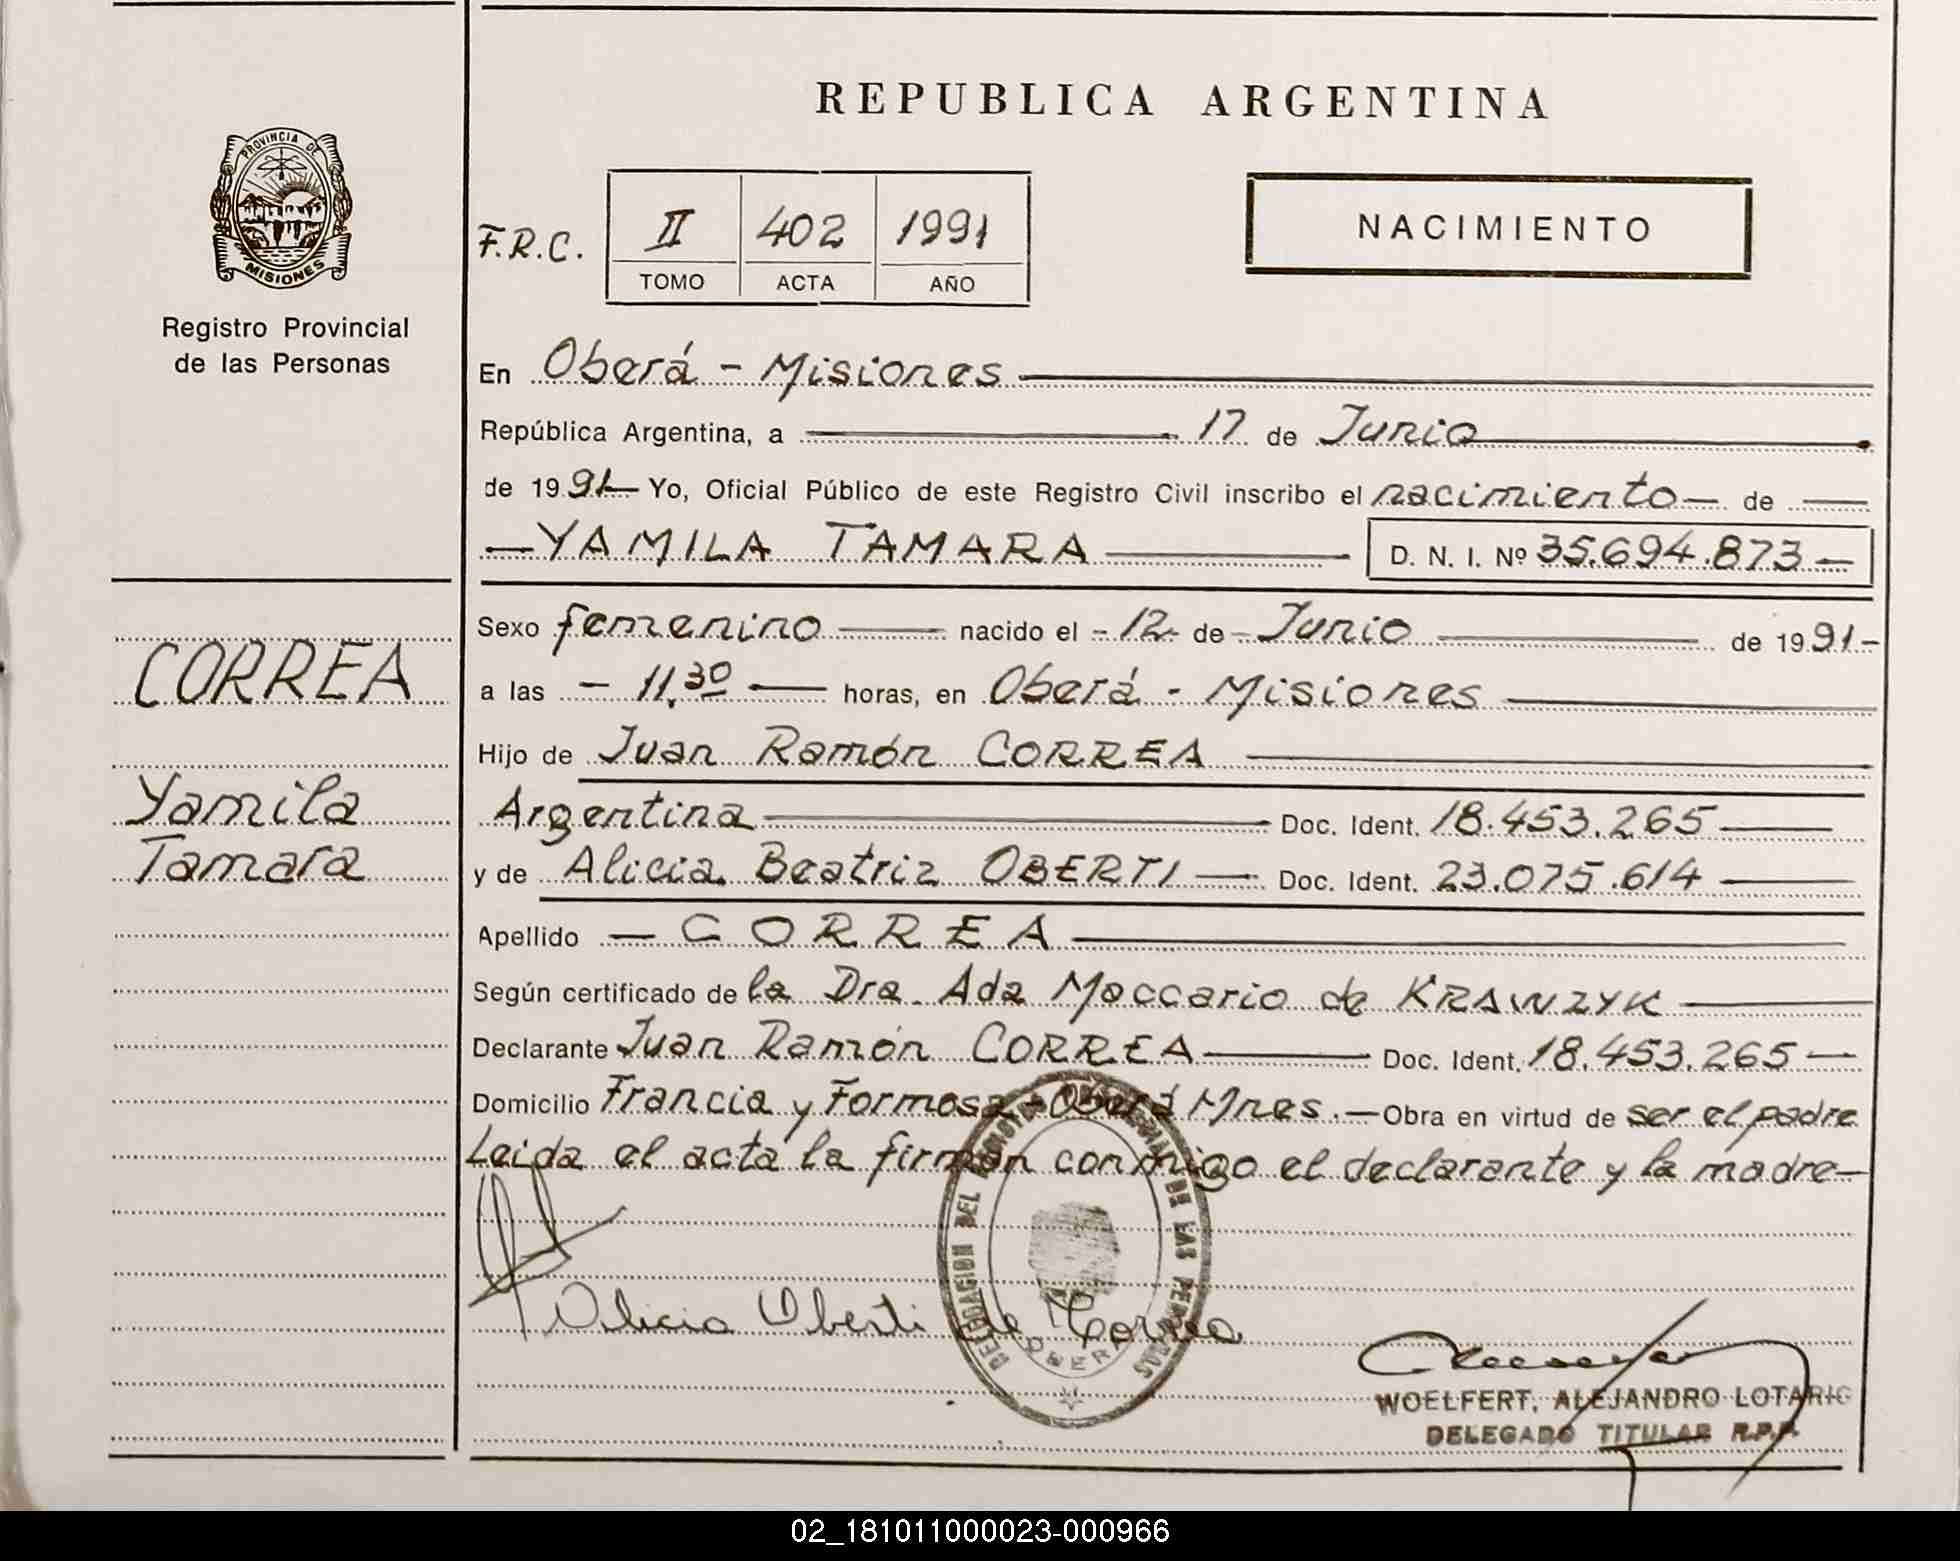 REPUBLICA ARGENTINA
PROVINCIA DE
MISIONES
Registro Provincial
de las Personas
F.R.C.
II 402 1991
TOMO ACTA AÑO
NACIMIENTO
En Oberá - Misiones
República Argentina, a 17 de Junio
de 1991 Yo, Oficial Público de este Registro Civil inscribo el nacimiento de
YAMILA TAMARA D. N. I. Nº 35.694.873
Sexo femenino nacido el 12 de Junio de 1991
a las 11.30 horas, en Oberá - Misiones
Hijo de Juan Ramón CORREA
Argentina Doc. Ident. 18.453.265
y de Alicia Beatriz OBERTI Doc. Ident. 23.075.614
Apellido CORREA
Según certificado de la Dra. Ada Maccario de KRAWZYK
Declarante Juan Ramón CORREA Doc. Ident. 18.453.265
Domicilio Francia y Formosa - Oberá Mnes. Obra en virtud de ser el padre
Leida el acta la firman conmigo el declarante y la madre
CORREA
Yamila
Tamara
Alicia Oberti de Correa
DELEGACION DEL REGISTRO PROVINCIAL DE LAS PERSONAS
OBERA
WOELFERT, ALEJANDRO LOTARIO
DELEGADO TITULAR R.P.P.
02_181011000023-000966